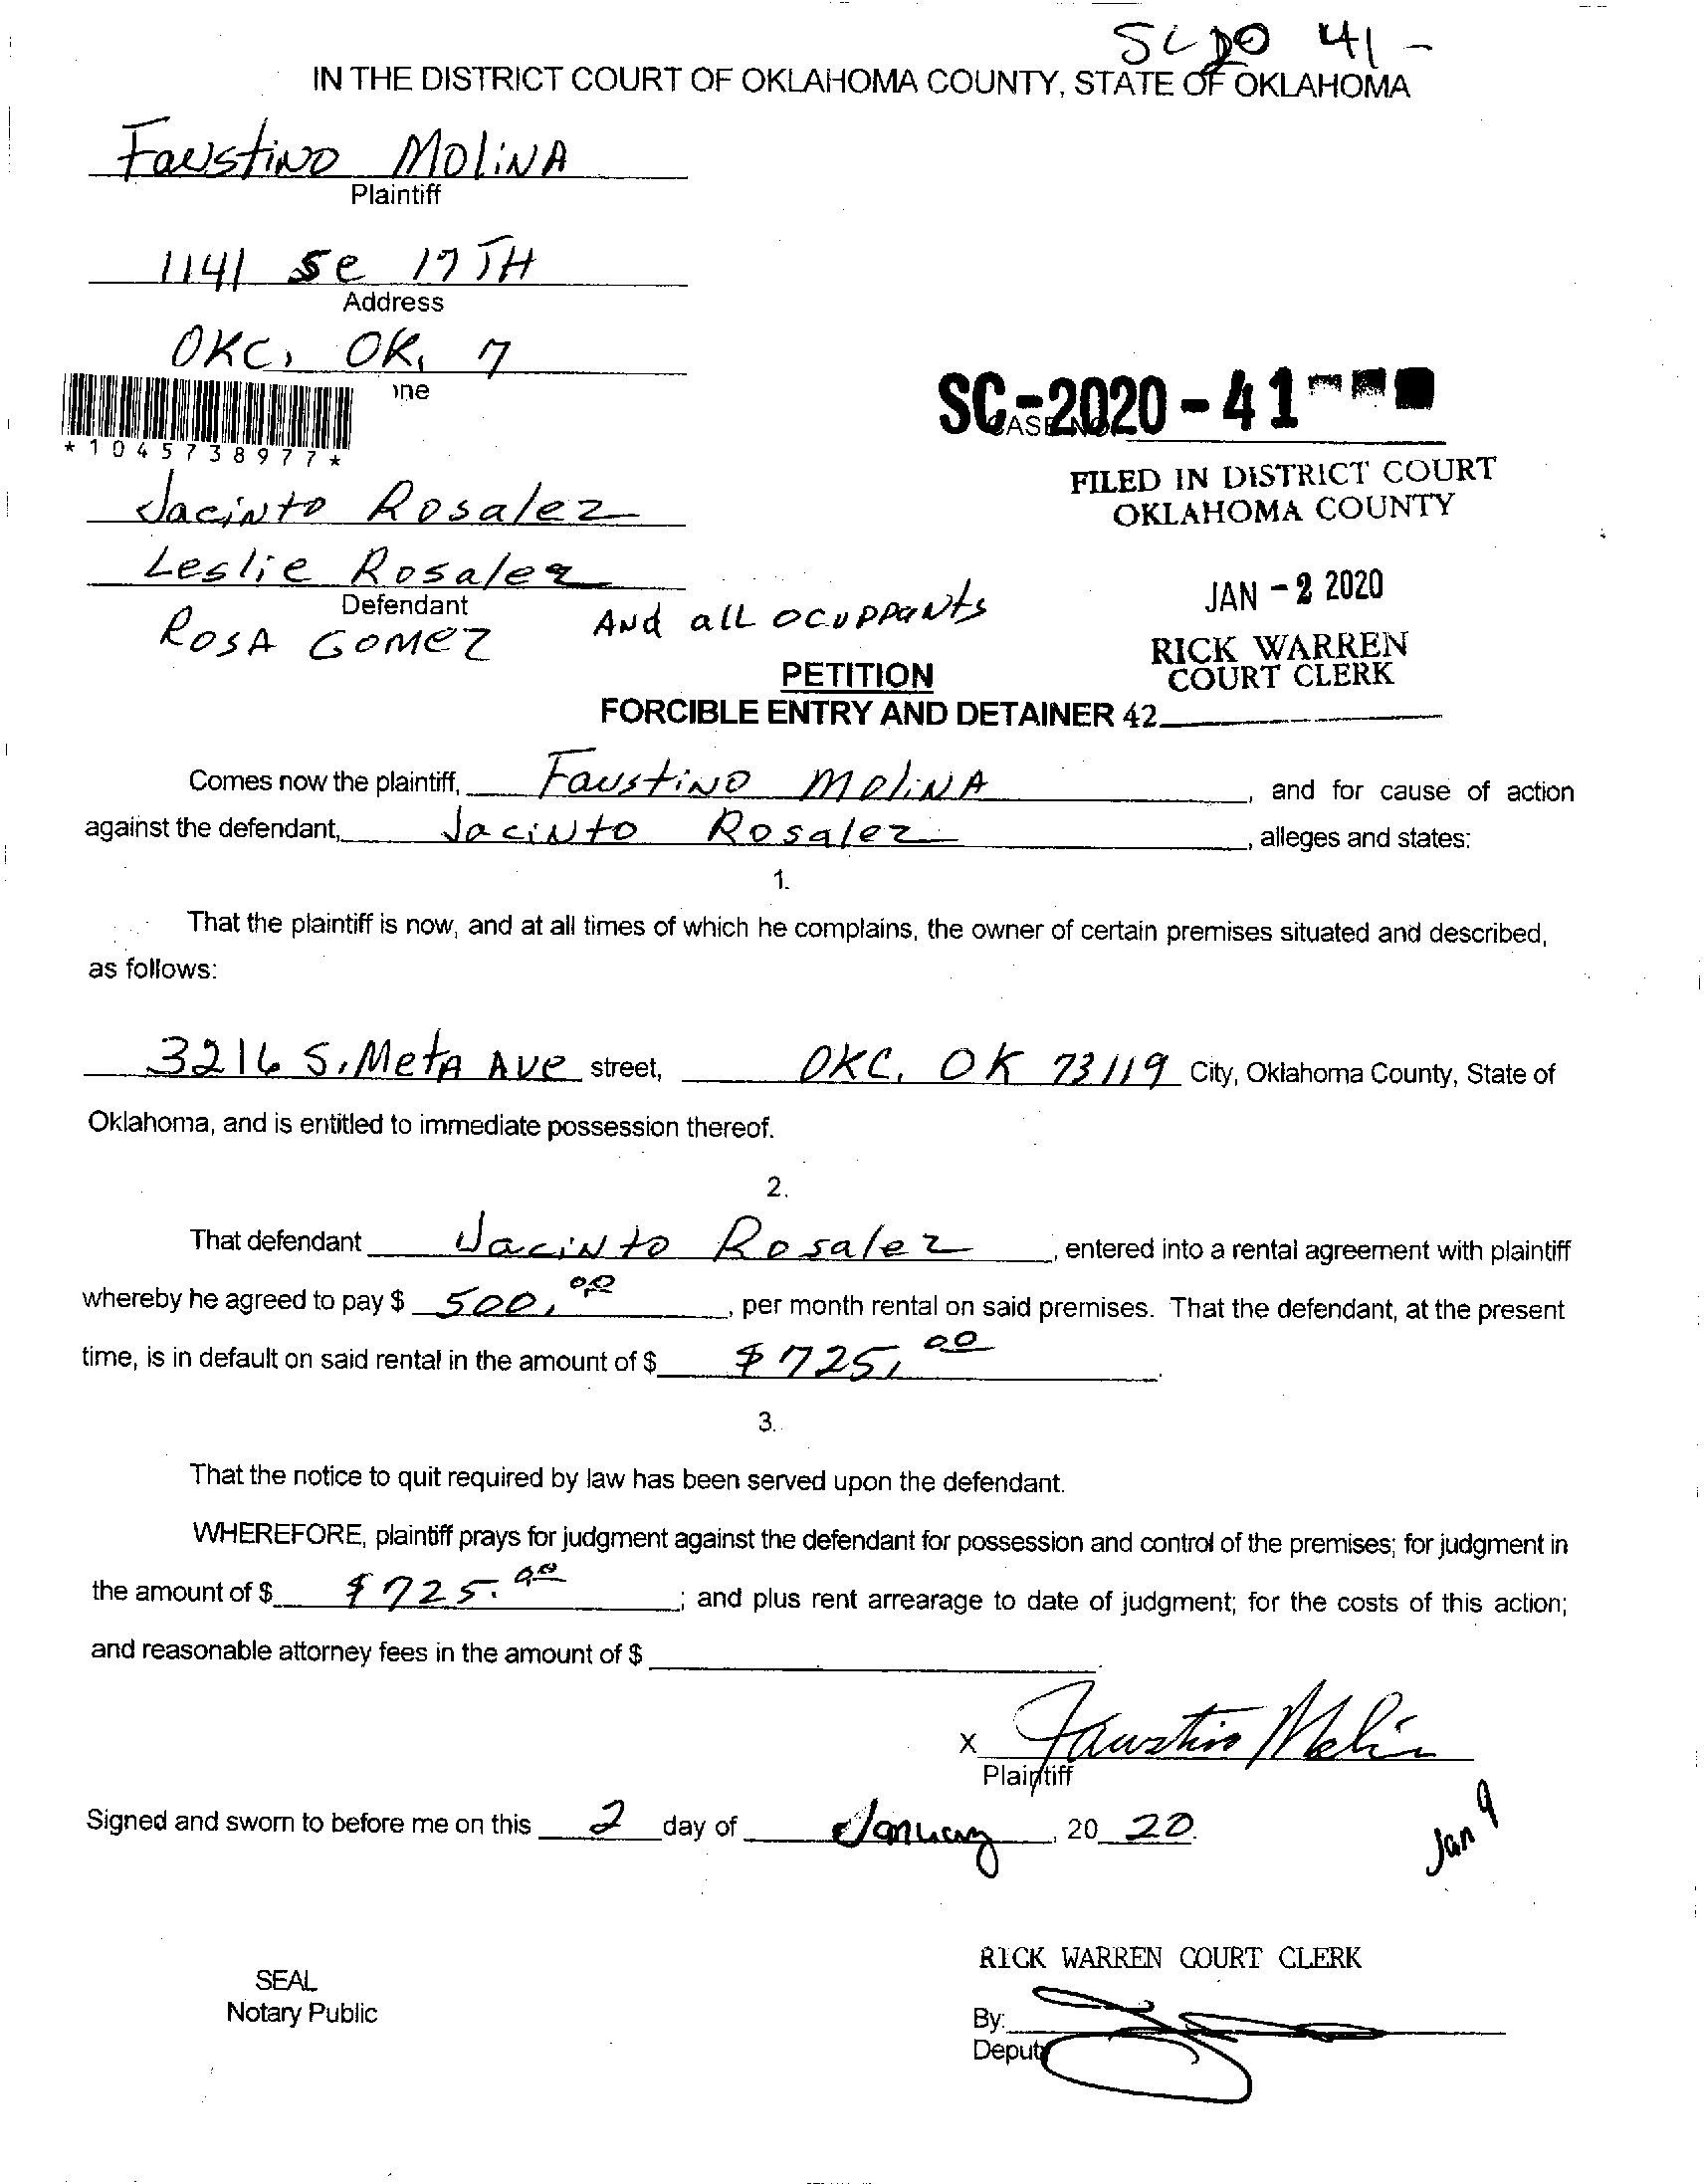 SC 20 41 -
IN THE DISTRICT COURT OF OKLAHOMA COUNTY, STATE OF OKLAHOMA
Faustino Molina
Plaintiff
1141 Se 17TH
Address
OKC, OK, 7
*1045738977*
SC-2020-41
CASE NO.
FILED IN DISTRICT COURT
OKLAHOMA COUNTY
Jacinto Rosalez
Leslie Rosalez
Defendant
Rosa Gomez And all ocuppants
JAN - 2 2020
RICK WARREN
COURT CLERK
PETITION
FORCIBLE ENTRY AND DETAINER 42
Comes now the plaintiff, Faustino Molina, and for cause of action
against the defendant, Jacinto Rosalez, alleges and states:
1.
That the plaintiff is now, and at all times of which he complains, the owner of certain premises situated and described,
as follows:
3216 S. Meta Ave street, OKC, OK 73119 City, Oklahoma County, State of
Oklahoma, and is entitled to immediate possession thereof.
2.
That defendant Jacinto Rosalez, entered into a rental agreement with plaintiff
whereby he agreed to pay $ 500.00, per month rental on said premises. That the defendant, at the present
time, is in default on said rental in the amount of $ $725.00.
3.
That the notice to quit required by law has been served upon the defendant.
WHEREFORE, plaintiff prays for judgment against the defendant for possession and control of the premises; for judgment in
the amount of $ $725.00; and plus rent arrearage to date of judgment; for the costs of this action;
and reasonable attorney fees in the amount of $
X Faustino Molina
Plaintiff
Signed and sworn to before me on this 2 day of January, 20 20.
Jan 9
RICK WARREN COURT CLERK
SEAL
Notary Public
By:
Deputy